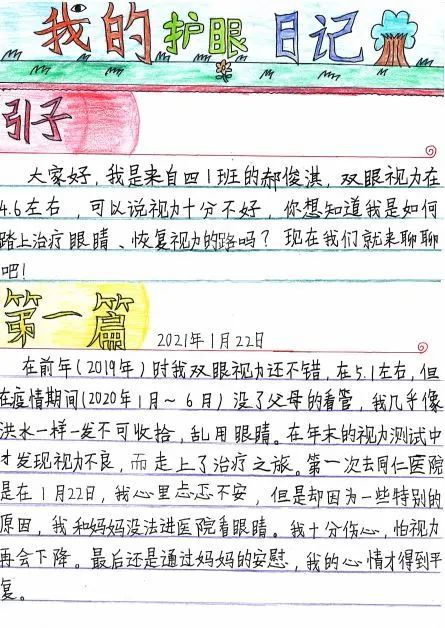 我的护眼日记
引子
大家好，我是来自四1班的郝俊淇，双眼视力在
4.6左右，可以说视力十分不好，你想知道我是如何
踏上治疗眼睛、恢复视力的路吗？现在我们就来聊聊
吧！
第一篇 2021年1月22日
在前年（2019年）时我双眼视力还不错，在5.1左右，但
在疫情期间（2020年1月～6月）没了父母的看管，我几乎像
洪水一样一发不可收拾，乱用眼睛。在年末的视力测试中
才发现视力不良，而走上了治疗之旅。第一次去同仁医院
是在1月22日，我心里忐忑不安，但是却因为一些特别的
原因，我和妈妈没法进医院看眼睛。我十分伤心，怕视力
再会下降。最后还是通过妈妈的安慰，我的心情才得到平
复。